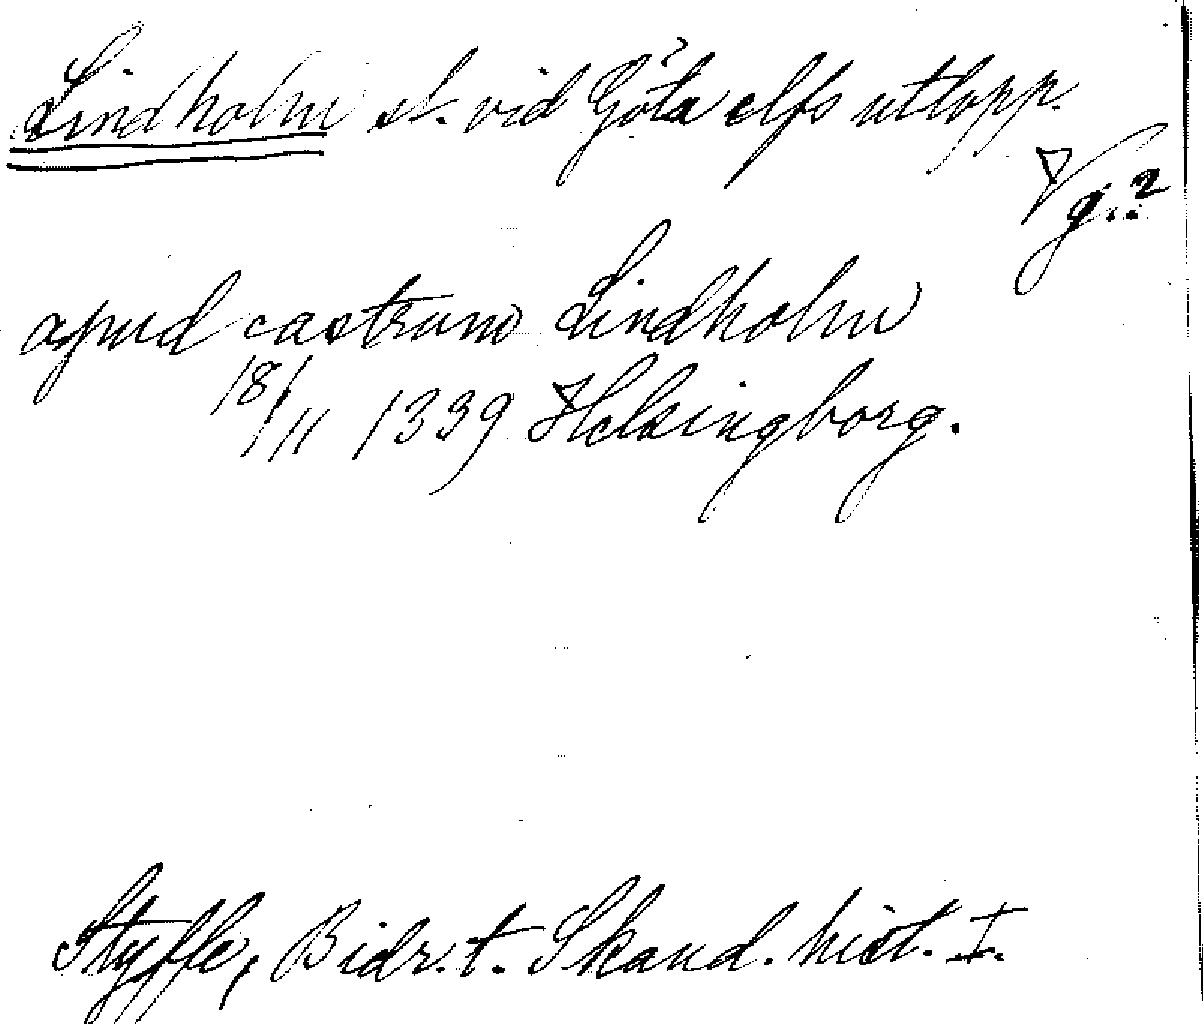 Lindholm sl. vid Göta elfs utlopp.
Vg.?
apud castrum Lindholm
18/11 1339 Helsingborg.
Styffe, Bidr. t. Skand. hist. I.